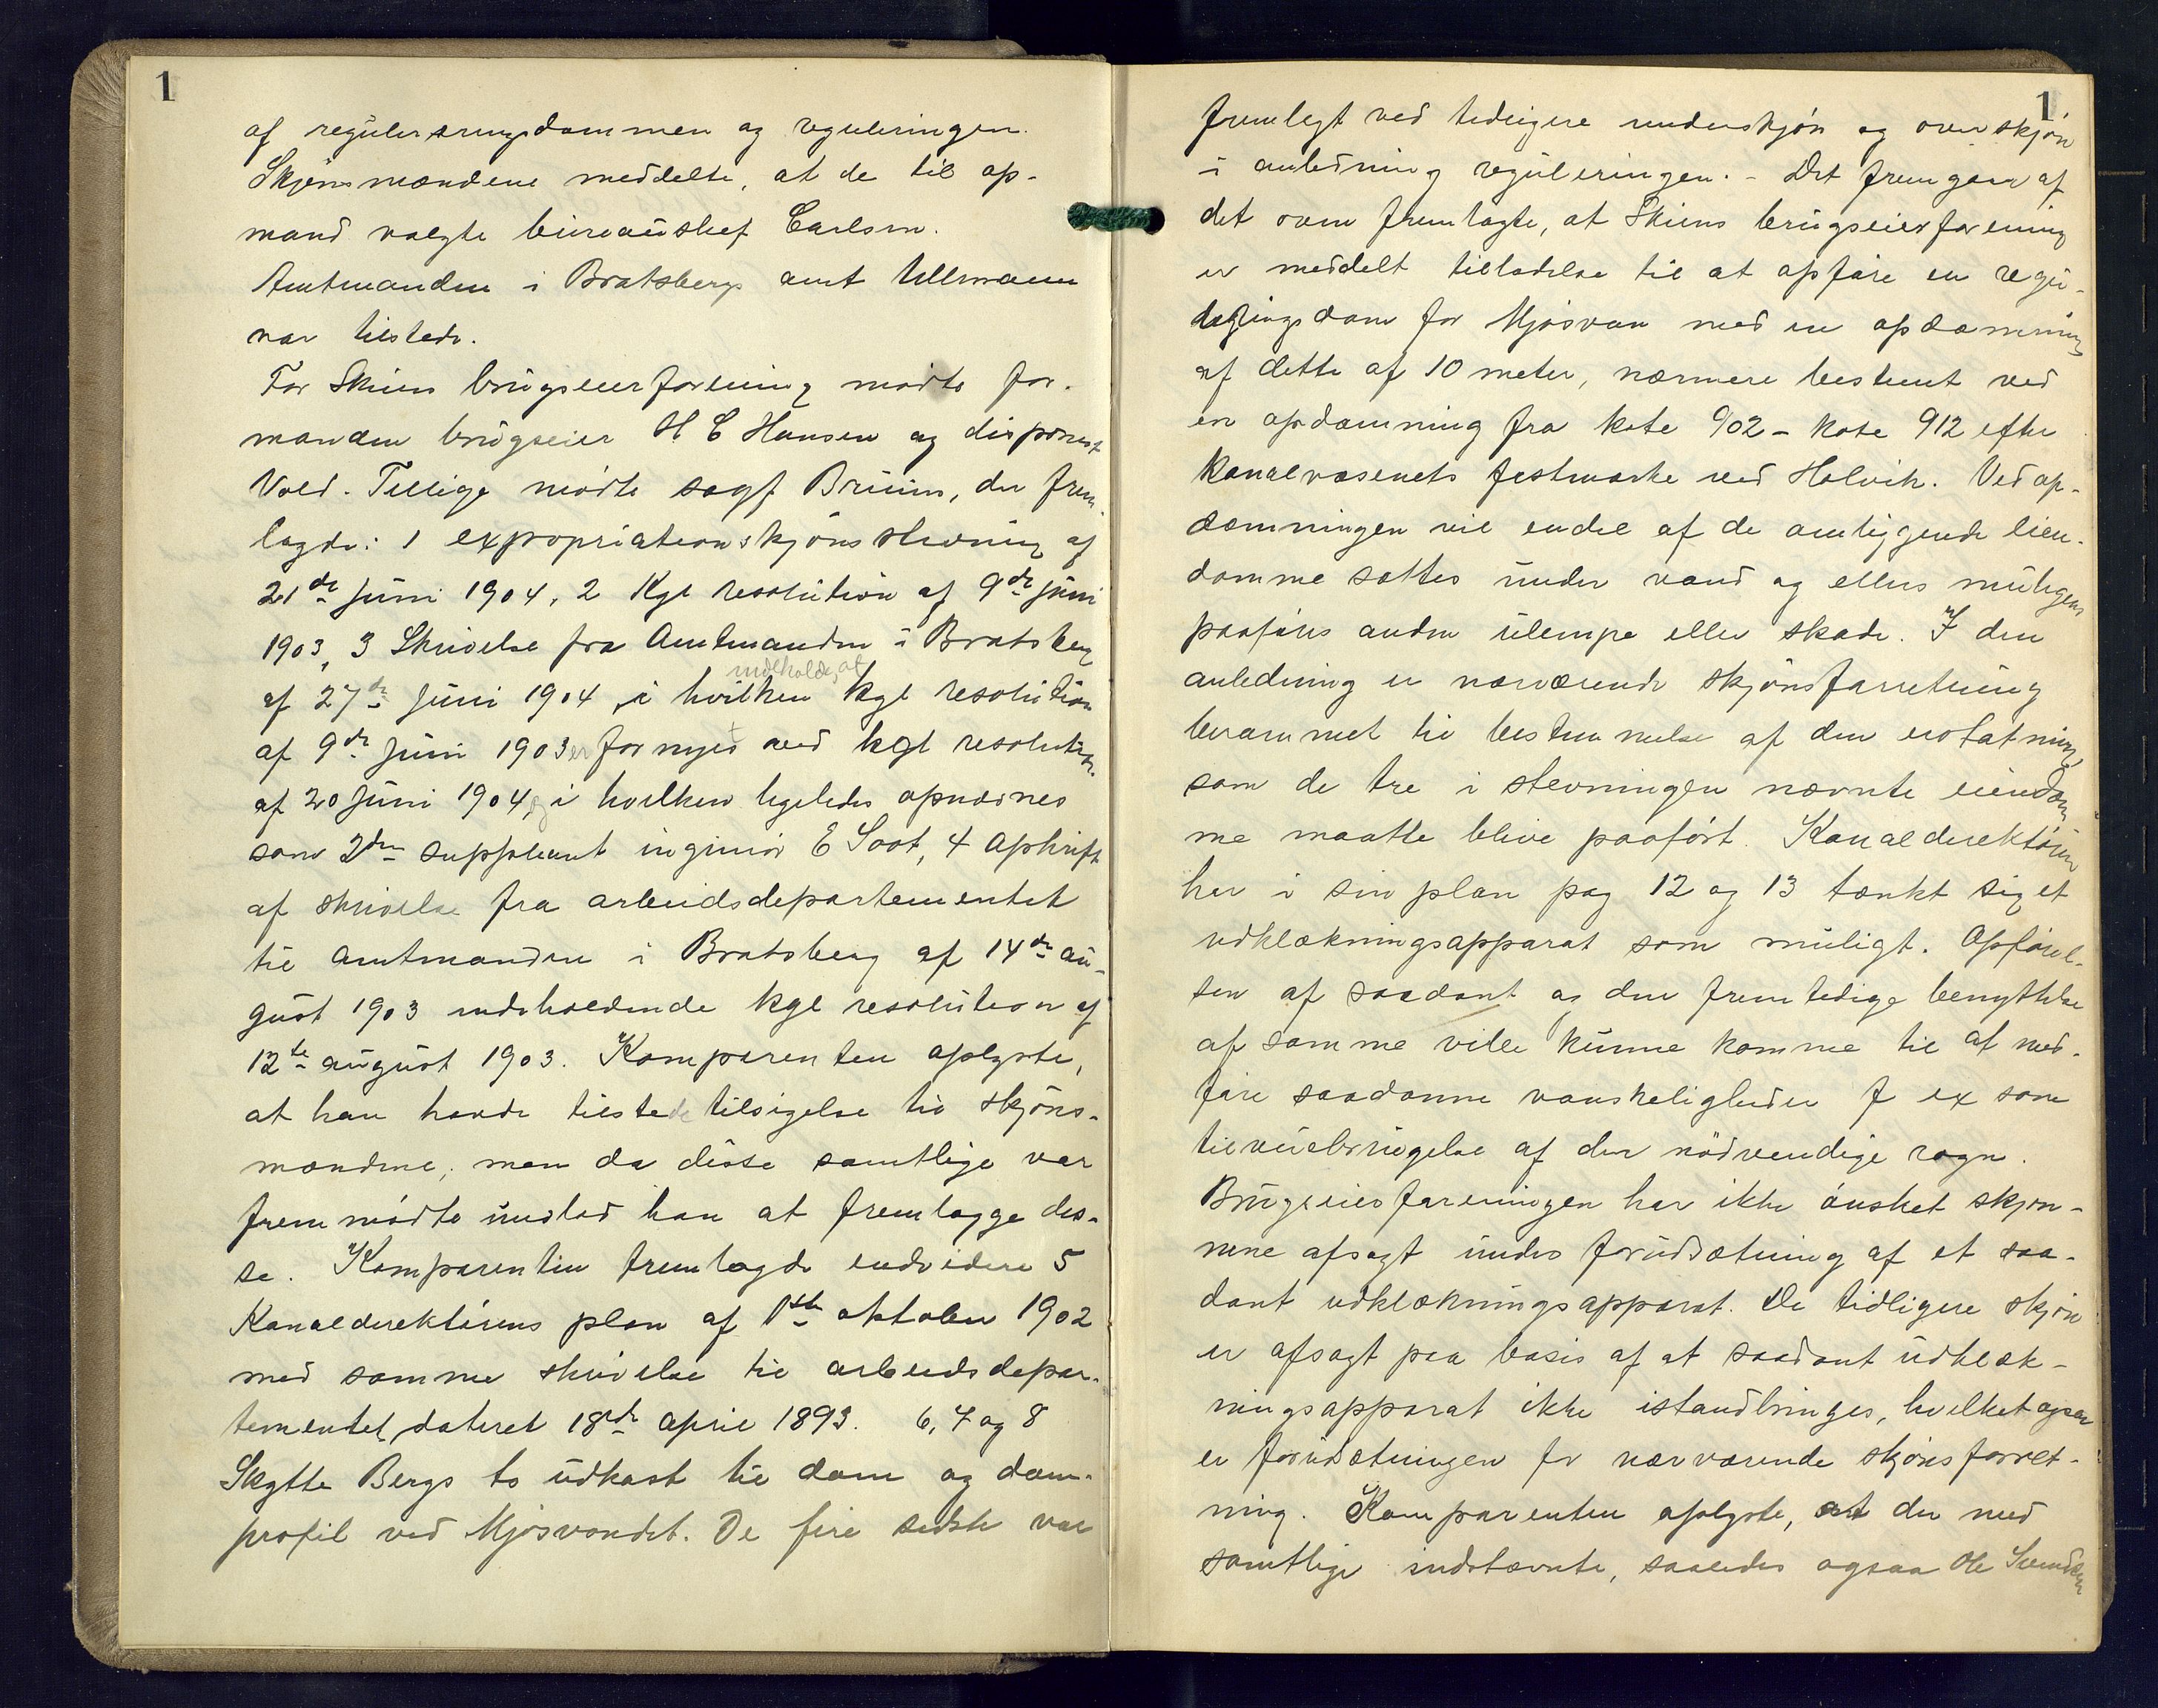 1
af reguleringsdammen og reguleringen.
Skjønsmændene meddelte, at de til op-
mand valgte bureauchef Carlsen.
Amtmanden i Bratsbergs amt Ullmann
var tilstede.
For Skiens brugseierforening mødte for-
manden brugseier H C Hansen og disponent
Vold. Tillige mødte sagf Bruun, der frem-
lagde: 1 expropriationsskjønsstevning af
21de juni 1904, 2 Kgl resolution af 9de juni
1903, 3 Skrivelse fra Amtmanden i Bratsberg
indeholde, at
af 27de juni 1904, i hvilken kgl resolution
af 9de juni 1903 er fornyet ved kgl resolution
af 20 juni 1904, i hvilken ligeledes opnævnes
som 2den suppleant ingeniør E Soot, 4 Afskrift
af skrivelse fra arbeidsdepartementet
til amtmanden i Bratsberg af 14de au-
gust 1903 indeholdende kgl resolution af
12te august 1903. Komparenten oplyste,
at han havde tilstede tilsigelse til skjøns-
mændene, men da disse samtlige var
fremmødte undlod han at fremlægge dis-
se. Komparenten fremlagde endvidere 5
Kanaldirektørens plan af 1ste oktober 1902
med samme skrivelse til arbeidsdepar-
tementet, dateret 18de april 1893. 6, 7 og 8
Skytte Bergs to udkast til dam og dam-
profil ved Mjøsvandet. De fire sidste var
1
fremlagt ved tidligere underskjøn og overskjøn
i anledning reguleringen. - Det fremgaar af
det oven fremlagte, at Skiens brugseierforening
er meddelt tilladelse til at opføre en regu-
leringsdam for Mjøsvan med en opdæmning
af dette af 10 meter, nærmere bestemt ved
en opdæmning fra kote 902 - kote 912 efter
Kanalvæsenets fastmærke ved Holvik. Ved op-
dæmningen vil endel af de omliggende eien-
domme sættes under vand og ellers muligens
paaføres anden ulempe eller skade. I den
anledning er nærværende skjønsforretning
berammet til bestemmelse af den erstatning,
som de tre i stevningen nævnte eiendom-
me maatte blive paaført. Kanaldirektøren
har i sin plan pag 12 og 13 tænkt sig et
udklækningsapparat som muligt. Opførel-
sen af saadant og den fremtidige benyttelse
af samme ville kunne komme til at med-
føre saadanne vanskeligheder f ex som
tilveiebringelse af den nødvendige rogn.
Brugseierforeningen har ikke ønsket skjøn-
nene afsagt under forudsætning af et saa-
dant udklækningsapparat. De tidligere skjøn
er afsagt paa basis af at saadant udklæk-
ningsapparat ikke istandbringes, hvilket ogsaa
er forudsætningen for nærværende skjønsforret-
ning. Komparenten oplyste, at der med
samtlige indstævnte, saaledes ogsaa Ole Svendsen